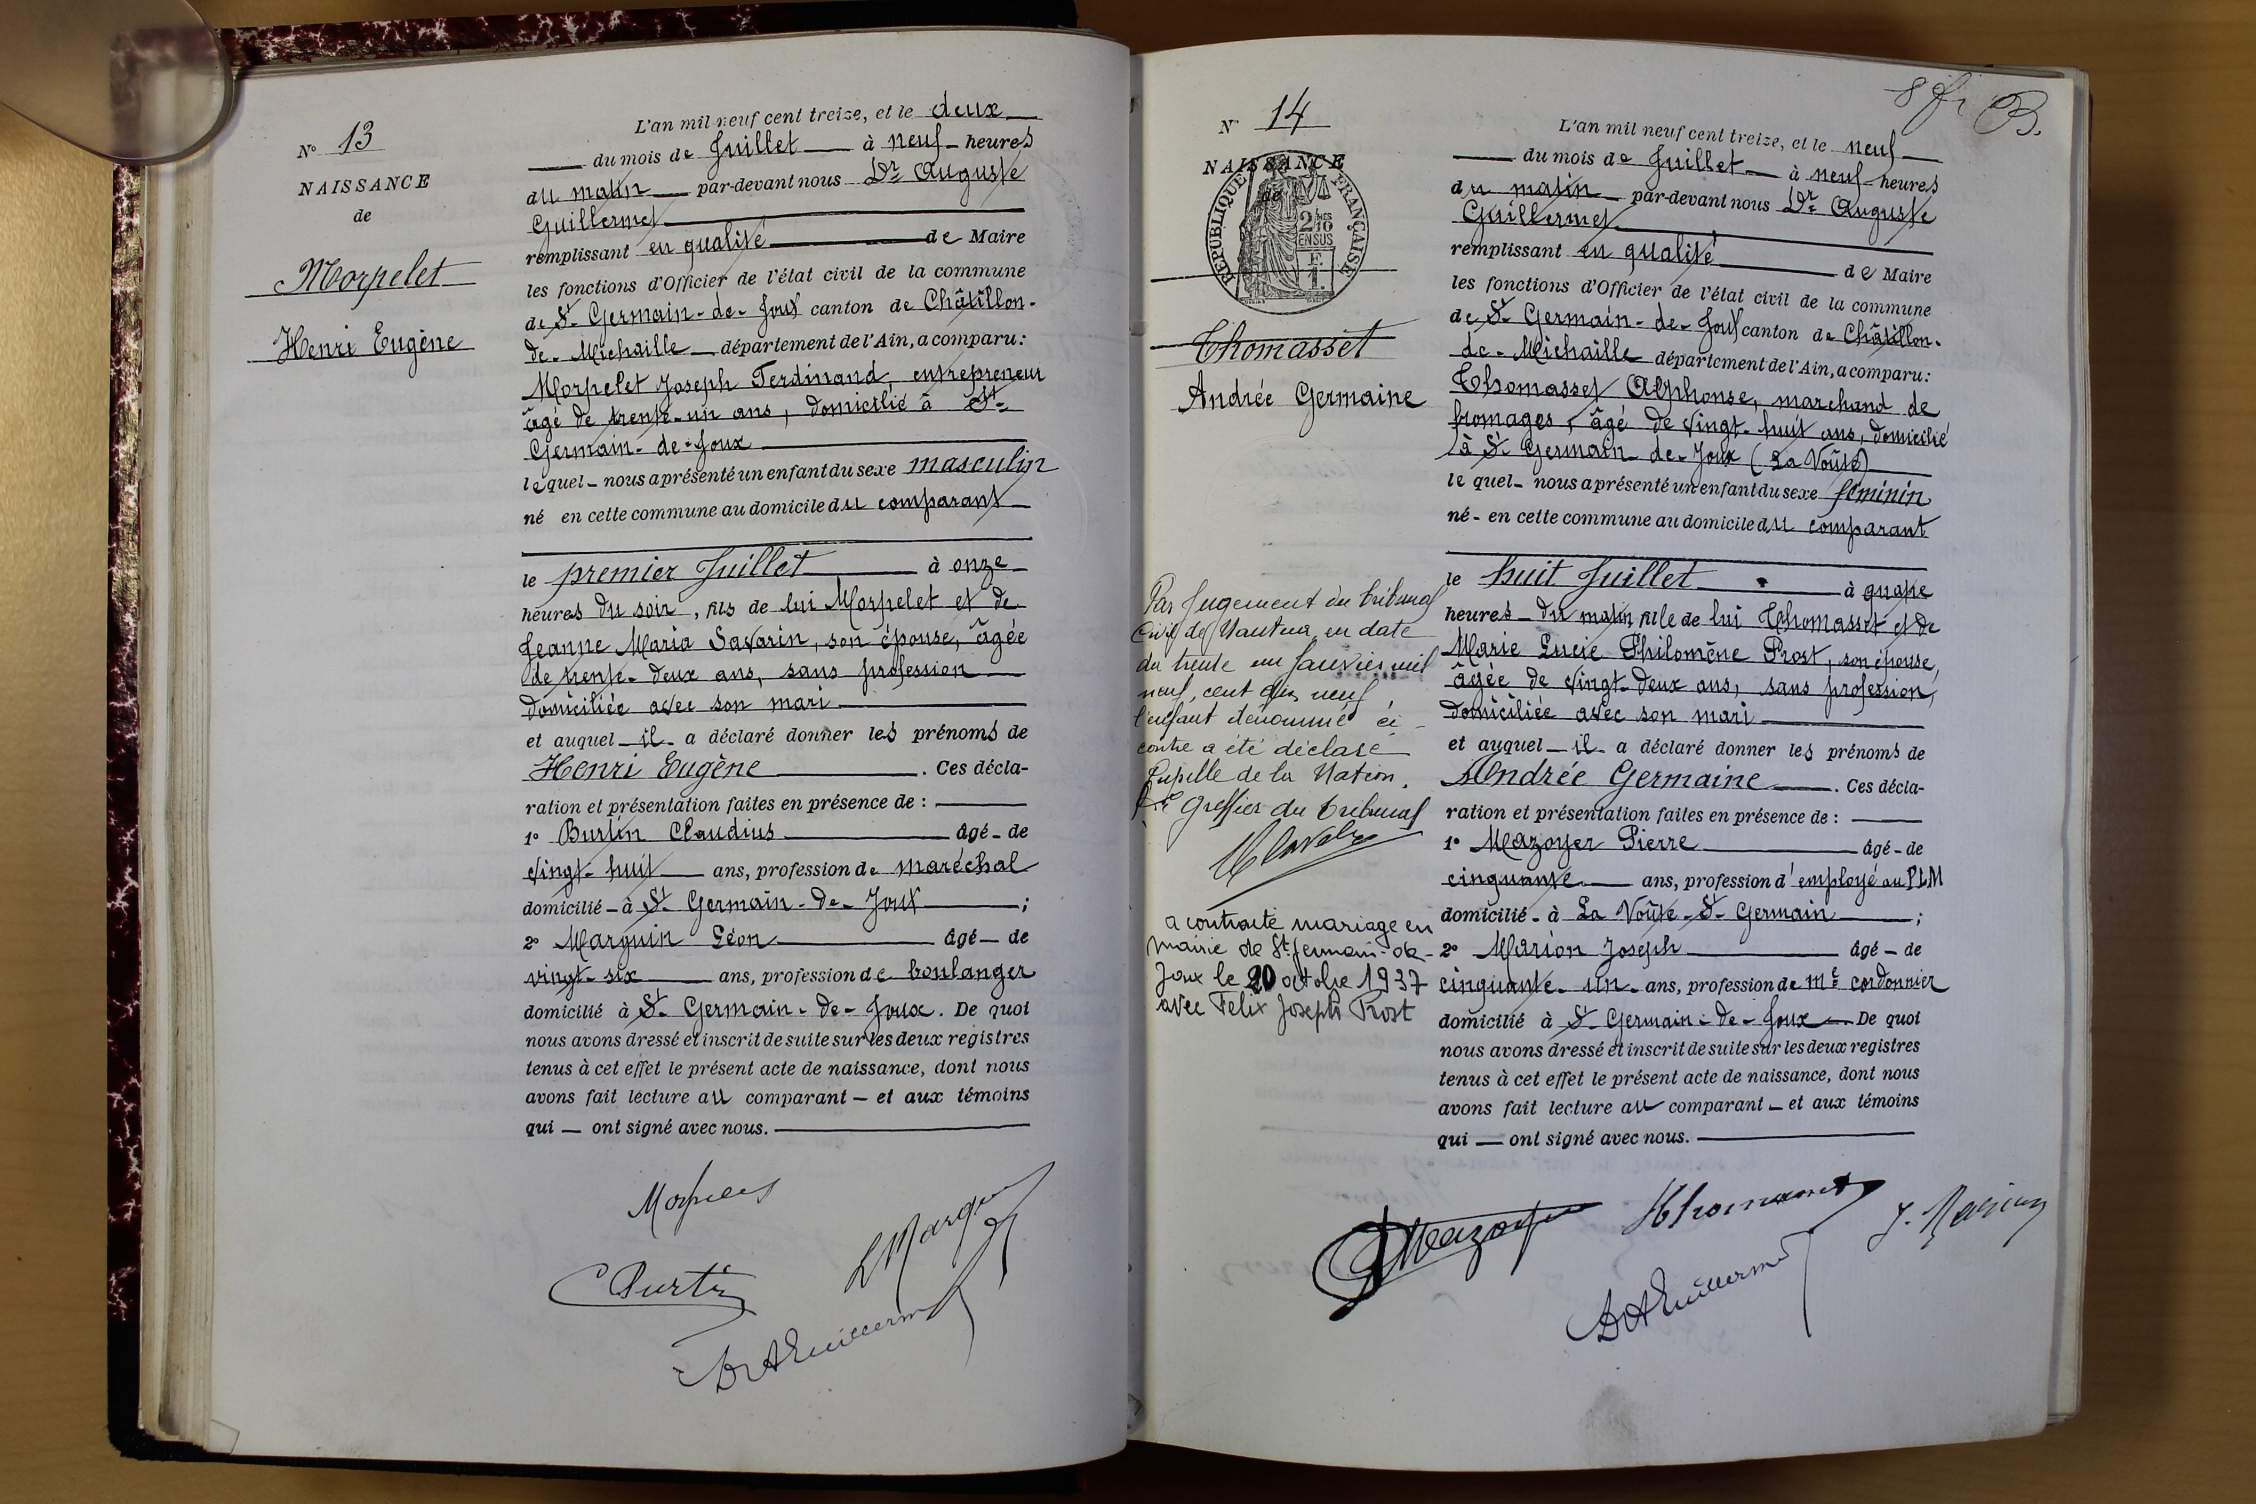 N° 13
NAISSANCE
de
Morpelet
Henri Eugène
L'an mil neuf cent treize, et le deux
du mois de Juillet à neuf heures
du matin par-devant nous Dr Auguste
Guillermet
remplissant en qualité de Maire
les fonctions d'Officier de l'état civil de la commune
de St-Germain-de-Joux canton de Châtillon-
de-Michaille département de l'Ain, a comparu:
Morpelet Joseph Ferdinand, entrepreneur
âgé de trente-un ans, domicilié à St-
Germain-de-Joux
lequel nous a présenté un enfant du sexe masculin
né en cette commune au domicile du comparant
le premier Juillet à onze
heures du soir, fils de lui Morpelet et de
Jeanne Maria Savarin, son épouse, âgée
de trente-deux ans, sans profession
domiciliée avec son mari
et auquel il a déclaré donner les prénoms de
Henri Eugène. Ces décla-
ration et présentation faites en présence de :
1° Burtin Claudius âgé de
vingt-huit ans, profession de maréchal
domicilié à St-Germain-de-Joux ;
2° Marquin Léon âgé de
vingt-six ans, profession de boulanger
domicilié à St-Germain-de-Joux. De quoi
nous avons dressé et inscrit de suite sur les deux registres
tenus à cet effet le présent acte de naissance, dont nous
avons fait lecture au comparant et aux témoins
qui ont signé avec nous.
C Burtin
L Marquin
Dr A Guillermet
8 B.
N° 14
NAISSANCE
de
RÉPUBLIQUE FRANÇAISE
2/10 EN SUS
F. 1.
Thomasset
Andrée Germaine
Par Jugement du tribunal
Civil de Nantua, en date
du trente un Janvier mil
neuf, cent dix neuf
l'enfant dénommé ci-
contre a été déclaré
Pupille de la Nation.
greffier du tribunal
a contracté mariage en
mairie de St Germain-de-
Joux le 20 octobre 1937
avec Félix Joseph Prost
L'an mil neuf cent treize, et le neuf
du mois de Juillet à neuf heures
du matin par-devant nous Dr Auguste
Guillermet
remplissant en qualité de Maire
les fonctions d'Officier de l'état civil de la commune
de St-Germain-de-Joux canton de Châtillon-
de-Michaille département de l'Ain, a comparu:
Thomasset Alphonse, marchand de
fromages, âgé de vingt-huit ans, domicilié
à St-Germain-de-Joux (La Voûte)
lequel nous a présenté un enfant du sexe féminin
né en cette commune au domicile du comparant
le huit Juillet à quatre
heures du matin fille de lui Thomasset et de
Marie Lucie Philomène Prost, son épouse,
âgée de vingt-deux ans, sans profession,
domiciliée avec son mari
et auquel il a déclaré donner les prénoms de
Andrée Germaine. Ces décla-
ration et présentation faites en présence de :
1° Mazoyer Pierre âgé de
cinquante ans, profession d'employé au PLM
domicilié à La Voûte-St-Germain ;
2° Marion Joseph âgé de
cinquante-un ans, profession de md cordonnier
domicilié à St-Germain-de-Joux De quoi
nous avons dressé et inscrit de suite sur les deux registres
tenus à cet effet le présent acte de naissance, dont nous
avons fait lecture au comparant et aux témoins
qui ont signé avec nous.
Mazoyer
Thomasset
J. Marion
Dr A Guillermet